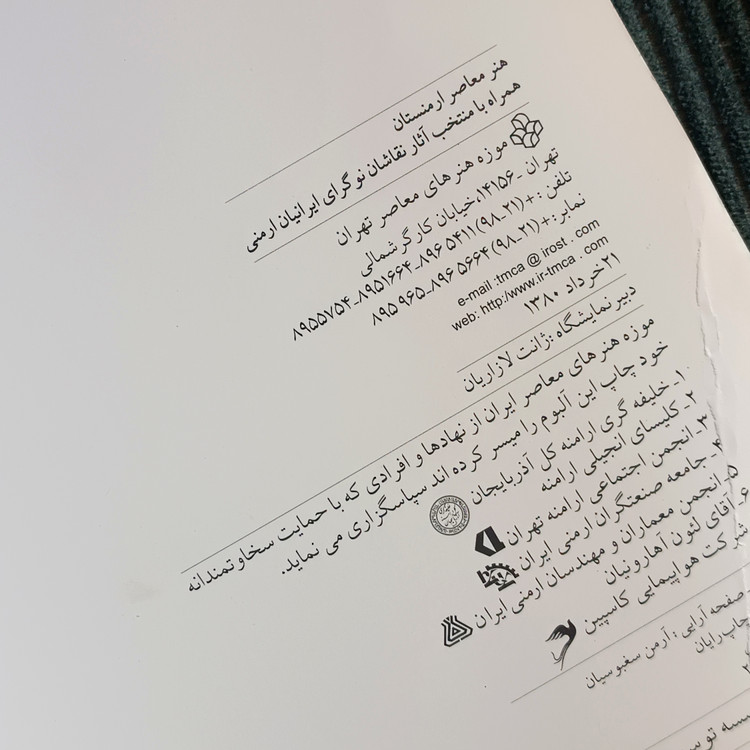 هنر معاصر ارمنستان
همراه با منتخب آثار نقاشان نوگرای ایرانیان ارمنی
موزه هنرهای معاصر تهران
تهران - ۱۴۱۵۶، خیابان کارگر شمالی
تلفن: +(۹۸-۲۱) ۸۹۶ ۵۴۱۱ - ۸۹۵۱۶۶۴ - ۸۹۵۵۷۵۴
نمابر: +(۹۸-۲۱) ۸۹۶ ۵۶۶۴ - ۸۹۵ ۹۶۵
e-mail :tmca @ irost . com
web: http:/www.ir-tmca . com
۲۱ خرداد ۱۳۸۰
دبیر نمایشگاه : ژانت لازاریان
موزه هنرهای معاصر ایران از نهادها و افرادی که با حمایت سخاوتمندانه
خود چاپ این آلبوم را میسر کرده اند سپاسگزاری می نماید.
۱_ خلیفه گری ارامنه کل آذربایجان
۲_ کلیسای انجیلی ارامنه
۳_ انجمن اجتماعی ارامنه تهران
۴_ جامعه صنعتگران ارمنی ایران
۵_ انجمن معماران و مهندسان ارمنی ایران
۶_ آقای لئون آهارونیان
شرکت هواپیمایی کاسپین
صفحه آرایی : آرمن سغبوسیان
چاپ رایان